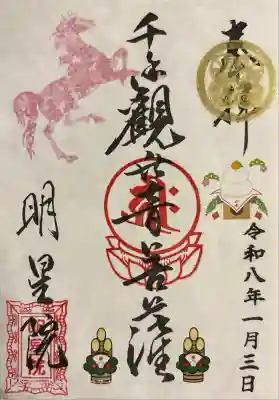 奉拝
令和八年一月三日
千手観世音菩薩
明星院